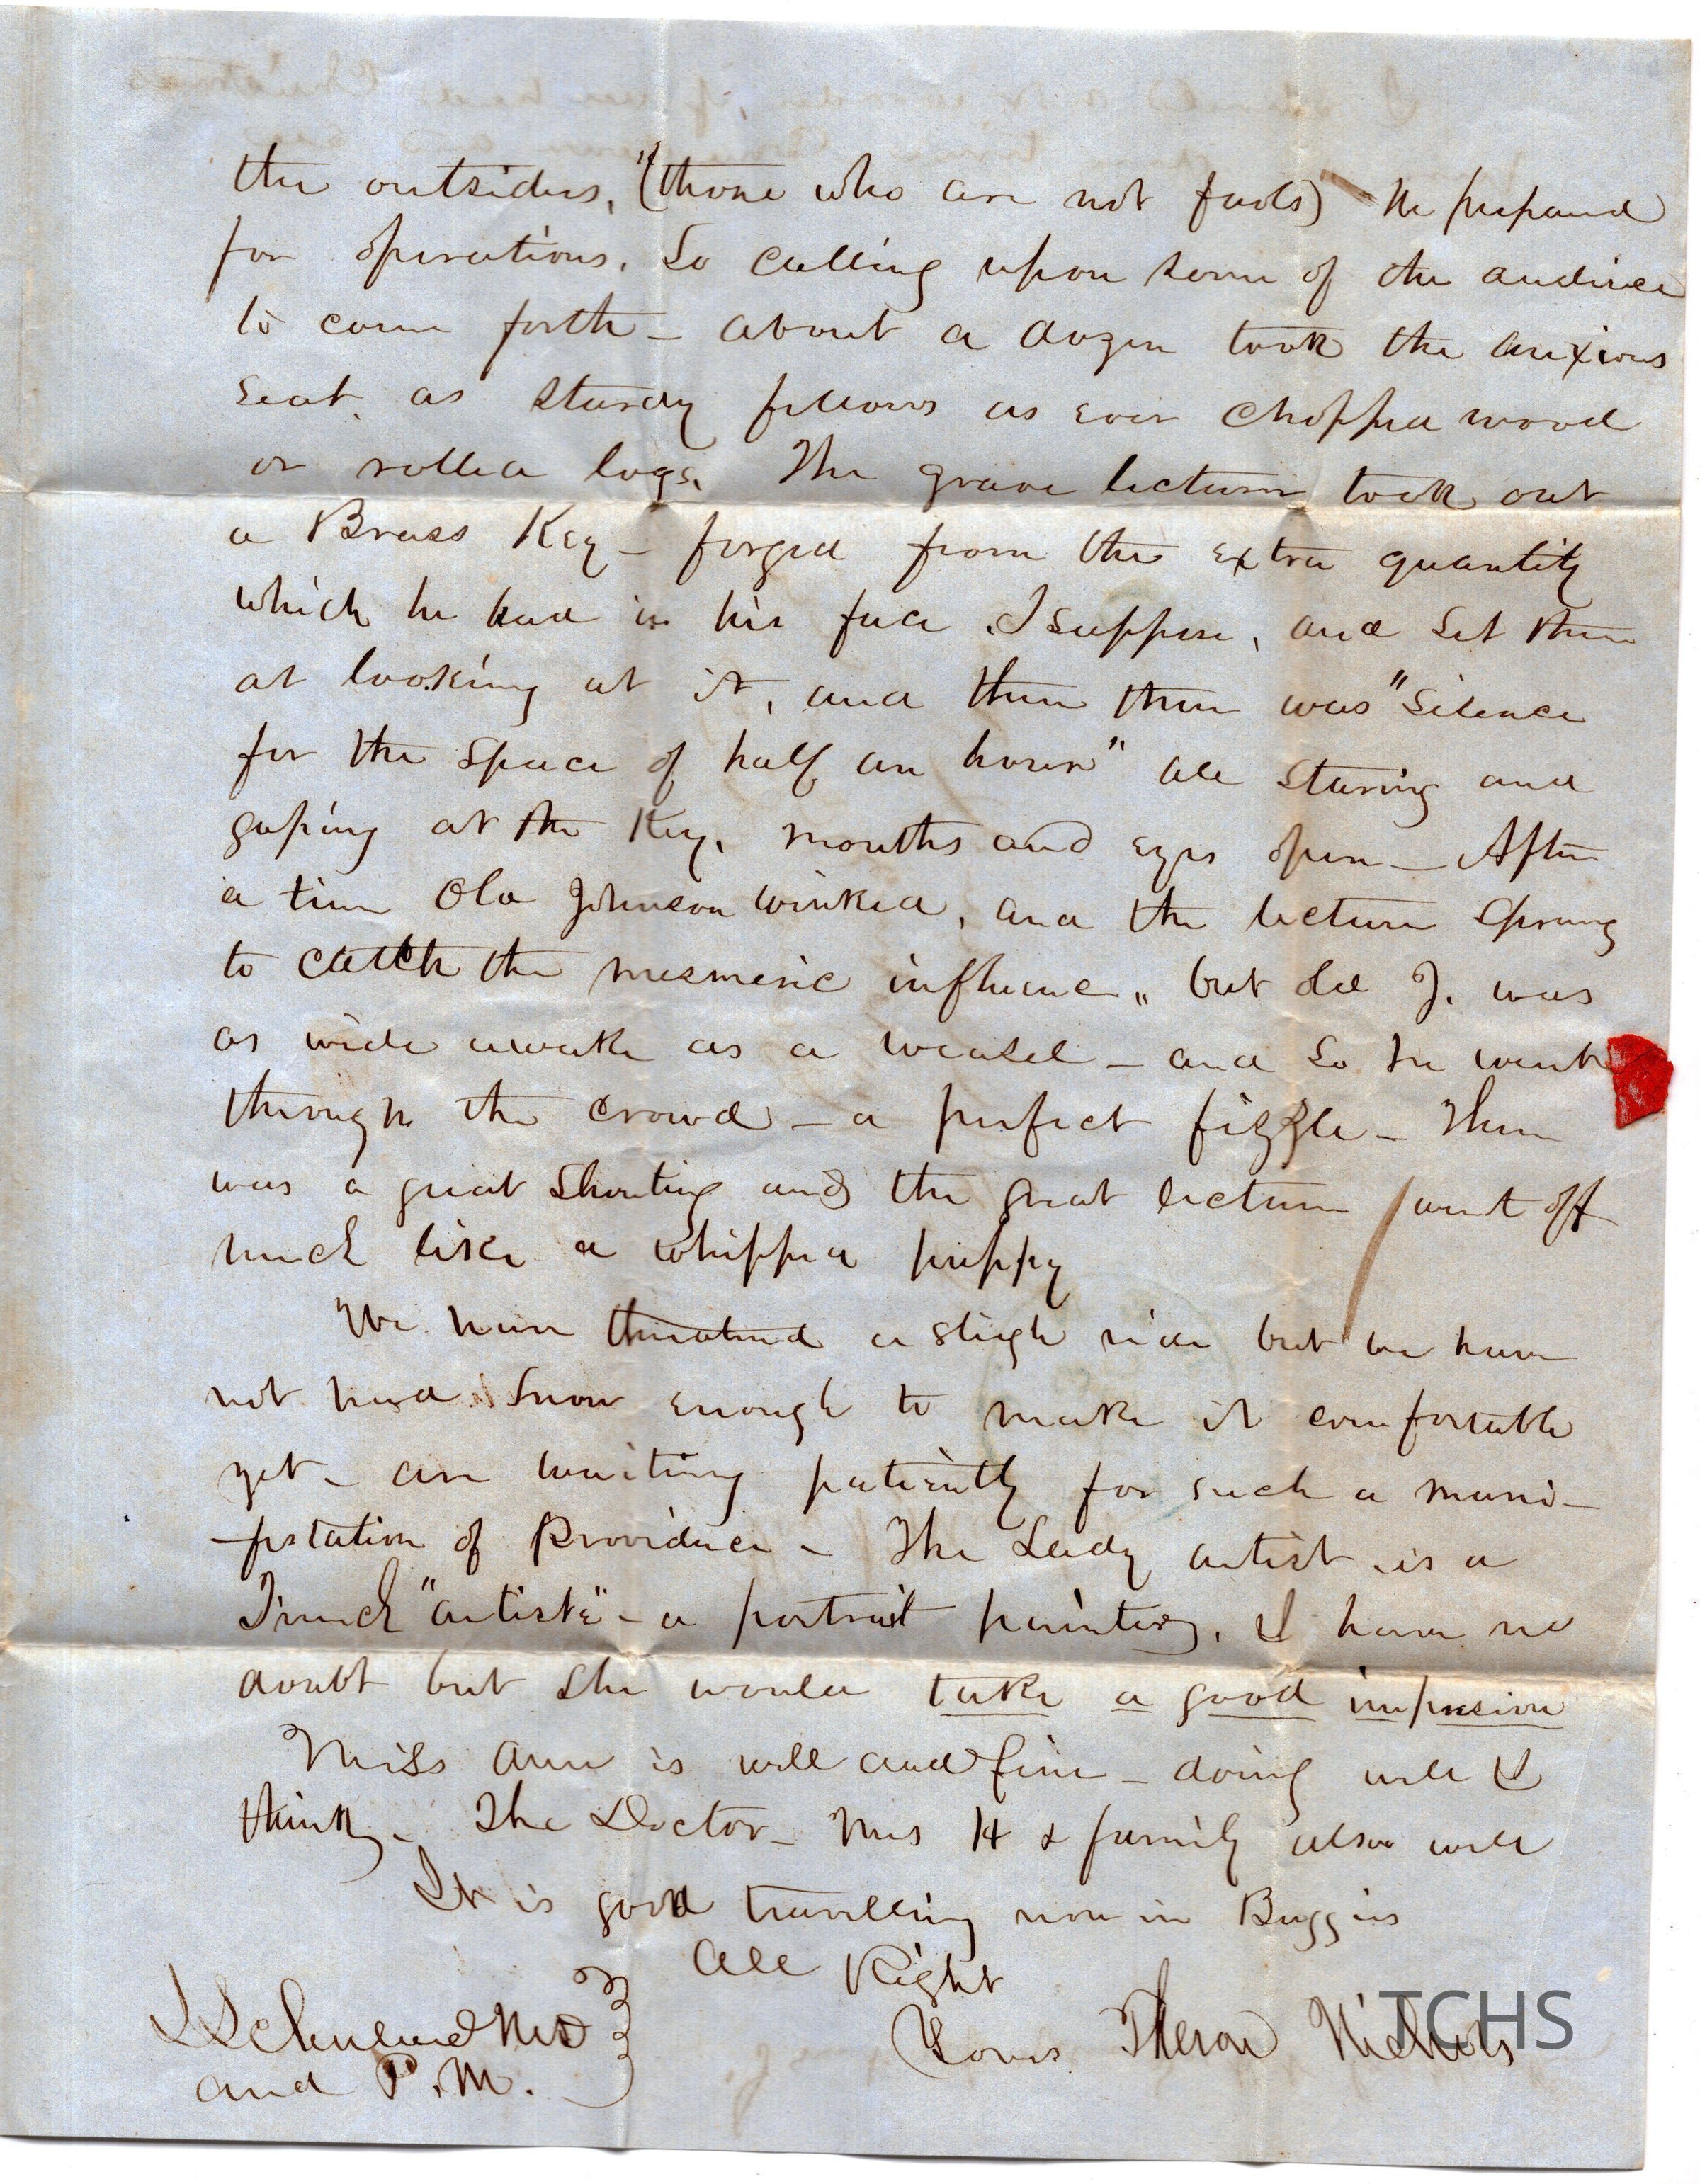 the outsiders, "(those who are not fools) he prepared
for operations. So calling upon some of the audience
to come forth – about a dozen took the anxious
seat, as sturdy fellows as ever chopped wood
or rolled logs. The grave lecturer took out
a Brass Key – forged from the extra quantity
which he had in his face I suppose, and set them
at looking at it, and then there was "Silence
for the space of half an hour" all staring and
gaping at the Key, mouths and eyes open – After
a time Old Johnson winked, and the lecturer sprang
to catch the mesmeric influence, but old J. was
as wide awake as a weasel – and so he went
through the crowd – a perfect fizzle – There
was a great shouting and the great lecturer went off
much like a whipped puppy
We have threatened a sleigh ride but we have
not had snow enough to make it comfortable
yet – are waiting patiently for such a mani-
-festation of Providence – The Lady artist is a
French "artiste" – a portrait painter, I have no
doubt but she would take a good impression
Miss Ann is well and fine – doing well I
think – The Doctor – Mrs H & family also well
It is good travelling now in Buggies
All Right
Yours Theron Nichols
MD
and P.M.
TCHS